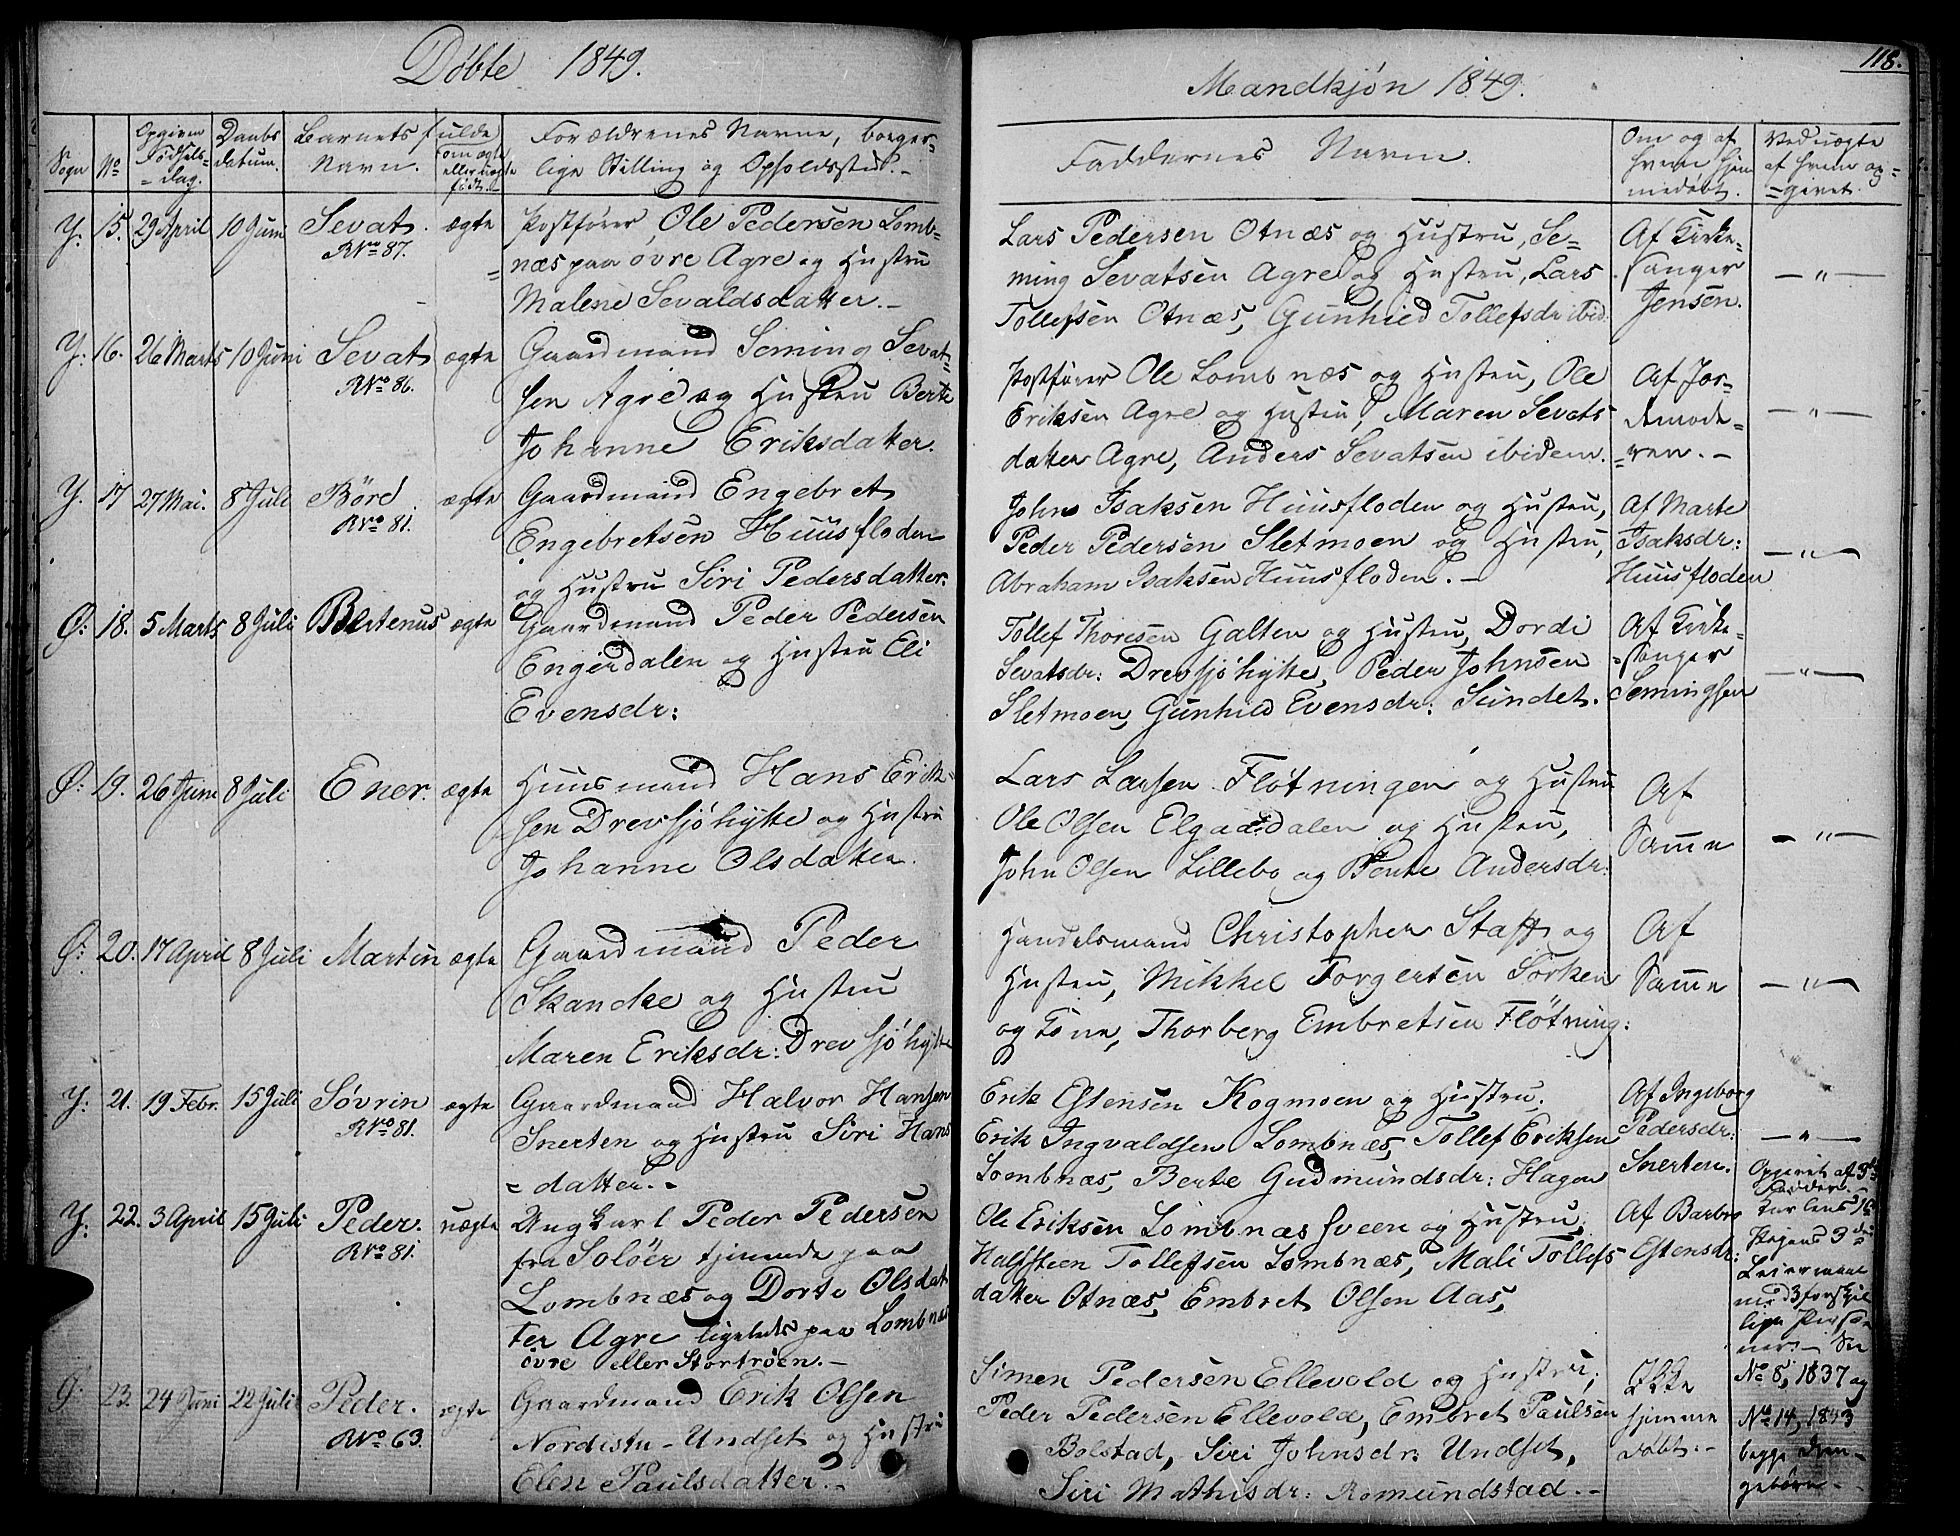 Døbte 1849.
Sogn
No
Opgiven Fødsels=
= dag.
Daabs
datum.
Barnets fulde
Navn.
om ægte
eller uægte
født.
Forældrenes Navne, borger=
lige Stilling og Opholdssted.
Y. 15. 29 April 10 Juni Sevat. ægte Postfører, Ole Pedersen Lomb=
RNo 87. næs paa øvre Agre og Hustru
Malene Sevaldsdatter.
Y: 16. 26 Marts 10 Juni Sevat ægte Gaardmand Seming Sevat=
RNo 86. sen Agre og Hustru Berte
Johanne Eriksdatter.
Y. 17 27 Mai. 8 Juli Börd ægte Gaardmand Engebret
RNo 81. Engebretsen Huusfloden
og Hustru Siri Pedersdatter.
Ø: 18. 5 Marts 8 Juli Bertenus ægte Gaardmand Peder Pedersen
Engerdalen og Hustru Eli
Evensdr:
Ø: 19. 26 Juni 8 Juli Ener. ægte Huusmand Hans Erik=
sen Drevsjøhytte og Hustru
Johanne Olsdatter.
Ø: 20. 17 April 8 Juli Martin ægte Gaardmand Peder
Skancke og Hustru
Maren Eriksdr: Drevsjöhytte
Y: 21. 19 Febr. 15 Juli Sövrin ægte Gaardmand Halvor Hansen
RNo 81. Snerten og Hustru Siri Hans
= datter.
Y. 22. 3 April 15 Juli Peder. uægte Ungkarl Peder Pedersen
RNo 81. fra Soløer tjenende paa
Lombnæs og Dorte Olsdat
ter Agre ligeledes paa Lombnæs
øvre eller Stortröen.
Ø: 23. 24 Juni 22 Juli Peder. ægte Gaardmand Erik Olsen
RNo 63. Nordistu-Undset og Hustru
Elen Paulsdatter.
Mandkjøn 1849.
118.
Faddernes Navne.
Om og af
hvem hjem
medøbt.
Ved uægte
af hvem op=
=givet
Lars Pedersen Otnæs og Hustru, Se=
ming Sevatsen Agre og Hustru, Lars
Tollefsen Otnæs, Gunhild Tollefsdr ibid.
Af Kirke=
sanger
Jensen.
Postfører Ole Lombnæs og Hustru, Ole
Eriksen Agre og Hustru, Maren Sevats
datter Agre, Anders Sevatsen ibidem.
Af Jor=
demode=
=ren.
John Isaksen Huusfloden og Hustru,
Peder Pedersen Sletmoen og Hustru,
Abraham Isaksen Huusfloden.
Af Marte
Isaksdr:
Huusfloden
Tollef Thoresen Galten og Hustru, Dordi
Sevatsdr: Drevsjöhytte, Peder Johnsen
Sletmoen, Gunhild Evensdr: Sundet.
Af Kirke=
=sanger
Semingsen
Lars Larsen Flötningen og Hustru
Ole Olsen Elgaadalen og Hustru,
John Olsen Lillebo og Bente Andersdr:
Af
Samme
Handelsmand Christopher Staff og
Hustru, Mikkel Torgersen Sorken
og Kone, Thorberg Embretsen Flötning:
Af
Samme
Erik Estensen Kogmoen og Hustru,
Erik Ingvaldsen Lombnæs, Tollef Eriksen
Lombnæs, Berte Gudmundsdr: Hagen
Af Ingeborg
Pedersdr:
Snerten.
Ole Eriksen Lombnæs Sveen og Hustru,
Halfsteen Tollefsen Lombnæs, Mali Tollefs
datter Otnæs, Embret Olsen Aas,
Af Barbro
Estensdr:
Opgivet af
Pigens 3die
Leiermaal
med 3 forskjel
lige Perso
ner.
No 8, 1837 og
No 14, 1843
begge
Simen Pedersen Ellevold og Hustru,
Peder Pedersen Ellevold, Embret Paulsen
Bolstad, Siri Johnsdr: Undset,
Siri Mathisdr: Romundstad.
Ikke
hjemme
døbt.